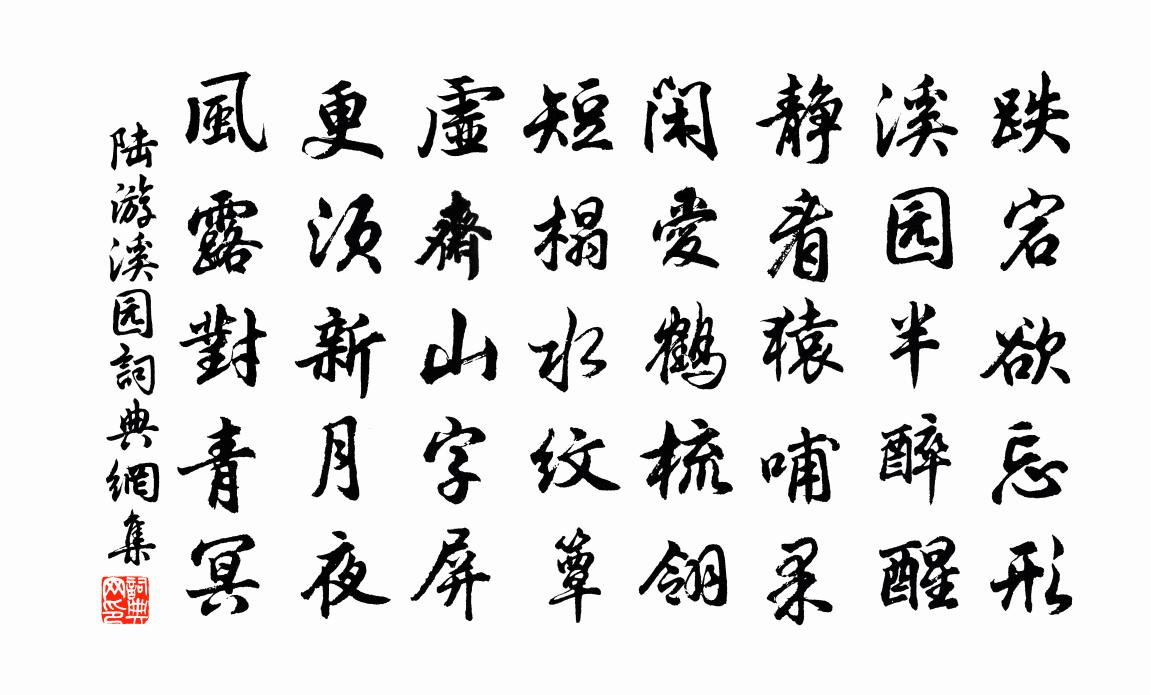 跌宕欲忘形
溪园半醉醒
静看猿哺果
闲爱鹤梳翎
短榻水纹簟
虚斋山字屏
更须新月夜
風露對青冥
陆游溪园詞典網集
詞典